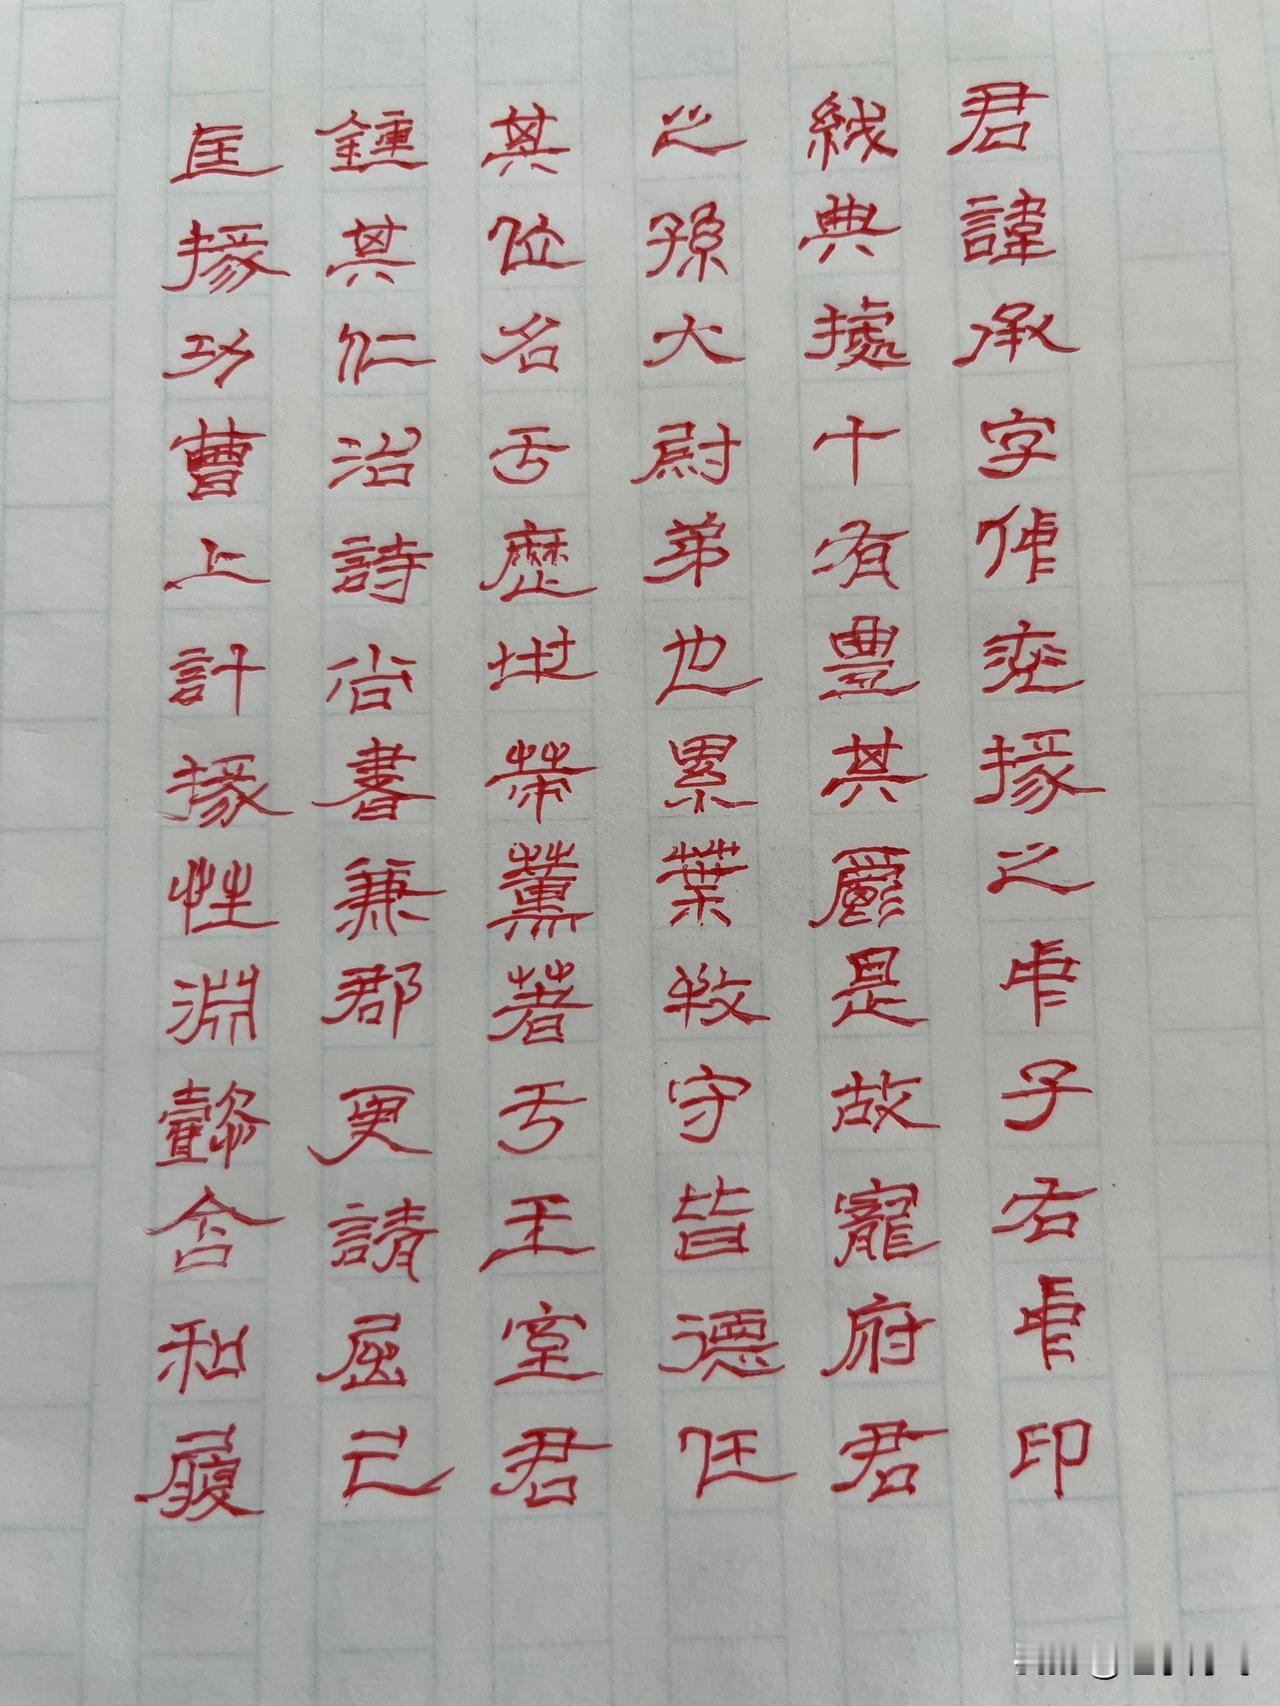 君諱承字仲兗掾之中子右中印
紱典據十有豐其爵是故寵府君
之孫大尉弟也累葉牧守皆德任
其位名于歷世策薰著于王室君
鍾其仁治詩尚書兼郡更請屈己
匡掾功曹上計掾性淵懿含和履